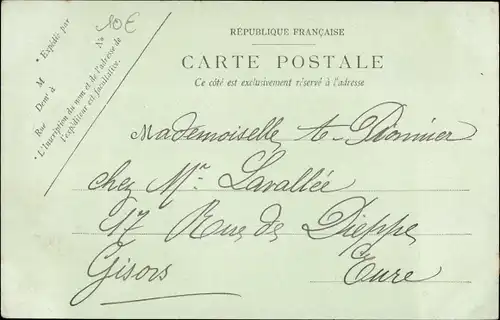 10€
* Expédié par
M
Demt à
Rue
No
* L'Inscription du nom et de l'adresse de
l'expéditeur est facultative.
RÉPUBLIQUE FRANÇAISE
CARTE POSTALE
Ce côté est exclusivement réservé à l'adresse
Mademoiselle
chez Mr Lavallée
17 Rue de Dieppe
Gisors Eure